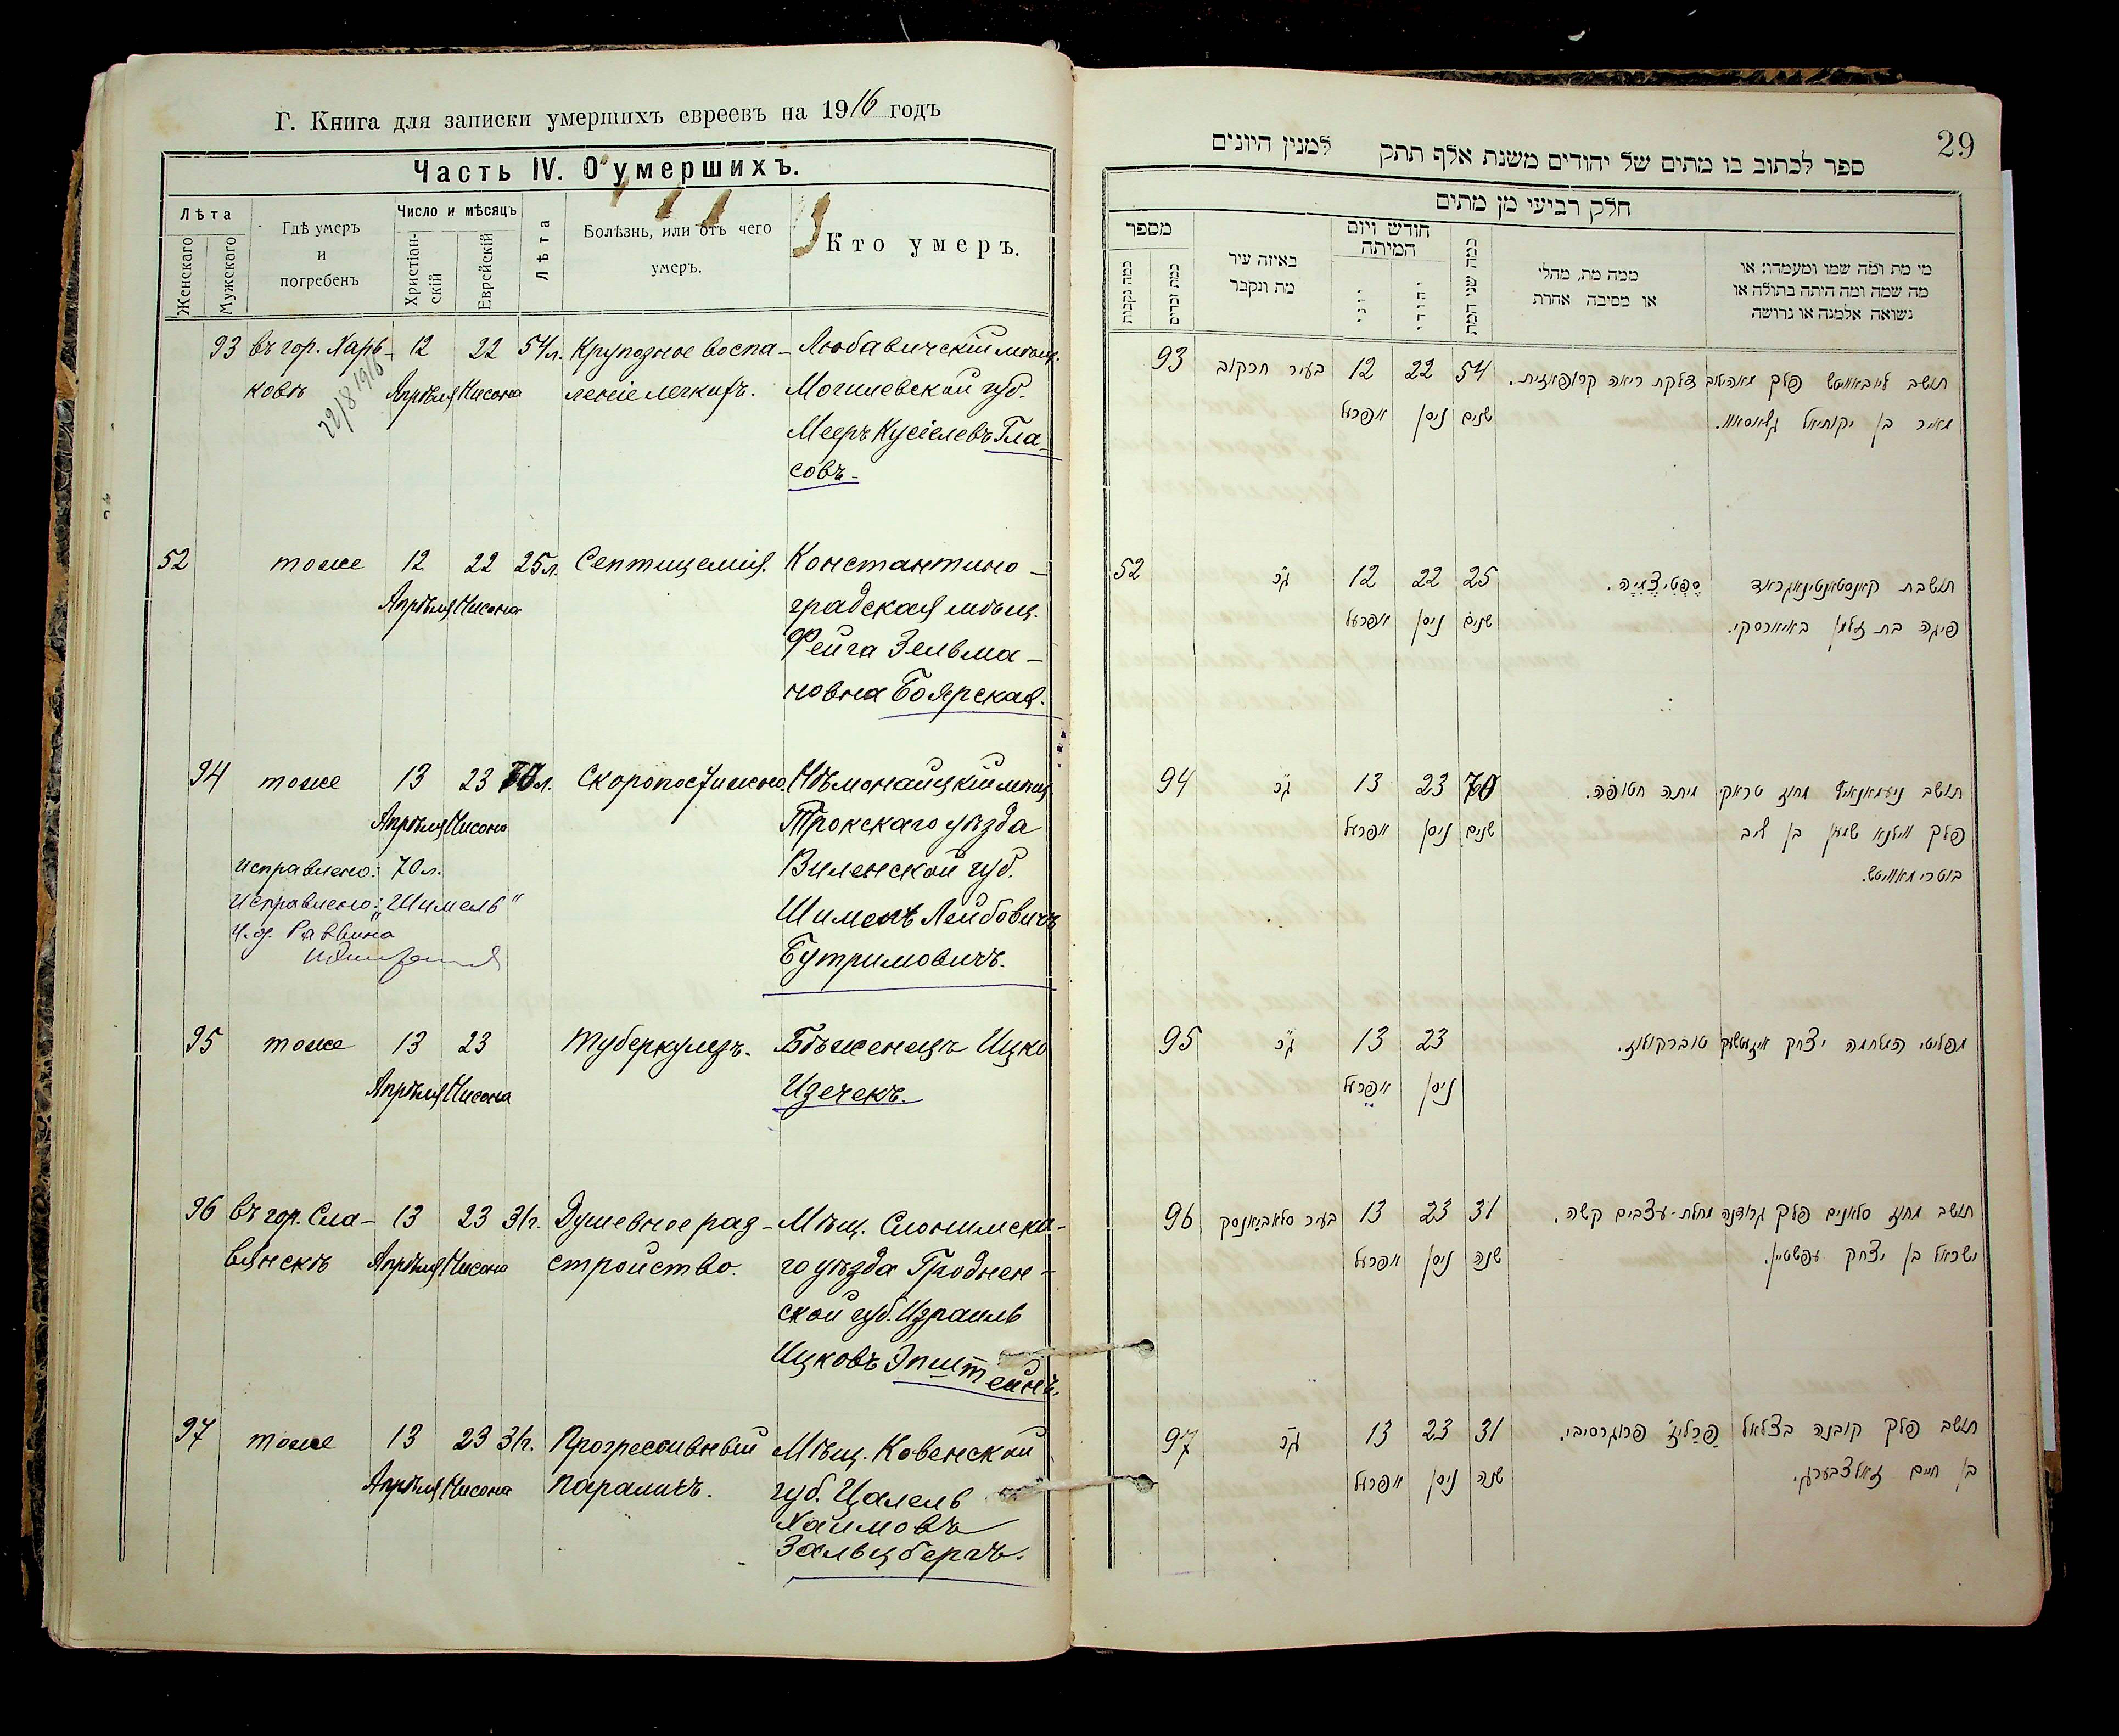 Г. Книга для записки умершихъ евреевъ на 1916 годъ
Часть IV. О умершихъ.
Лѣта
Женскаго
Мужскаго
Гдѣ умеръ
и
погребенъ
Число и мѣсяцъ
Христіан-
скій
Еврейскій
Лѣта
Болѣзнь, или отъ чего
умеръ.
Кто умеръ.
93 въ гор. Харь- 12 22 54 л. Крупозное воспа- Любавичскій мѣщ.
ковѣ Апрѣля Нисона леніе легкихъ. Могилевской губ.
22/8 1916
Мееръ Кусіелевъ Гла-
совъ.
52 тоже 12 22 25 л. Септицемія. Константино-
Апрѣля Нисона градская мѣщ.
Фейга Зельма-
новна Боярская.
94 тоже 13 23 70 л. Скоропостижно. Нѣмонайцкій мѣщ.
Апрѣля Нисона Трокскаго уѣзда
Исправлено: 70 л. Виленской губ.
Исправлено: „Шимель" Шимель Лейбовичъ
И. о. Раввина
Бутримовичъ.
95 тоже 13 23 Туберкулезъ. Бѣженецъ Ицко
Апрѣля Нисона Изечекъ.
96 въ гор. Сла- 13 23 31 г. Душевное раз- Мѣщ. Слонимска-
вянскѣ Апрѣля Нисона стройство. го уѣзда Гроднен-
ской губ. Израиль
Ицковъ Эпштейнъ.
97 тоже 13 23 31 г. Прогрессивный Мѣщ. Ковенской
Апрѣля Нисона параличъ. губ. Цалель
Хаимовъ
Зальцбергъ.
29
ספר לכתוב בו מתים של יהודים משנת אלף תתק למנין היונים
חלק רביעי מן מתים
מספר
כמה נקבות
כמה זכרים
באיזה עיר
מת ונקבר
חודש ויום
המיתה
יוני
יהודי
כמה שני המת
ממה מת, מחלי
או מסיבה אחרת
מי מת ומה שמו ומעמדו: או
מה שמה ומה היתה בתולה או
נשואה אלמנה או גרושה
93 בעיר חרקוב 12 22 54 דלקת ריאה קרופאזית. תושב ליובאוויטש פלך מאהילוב
אפריל ניסן שנים מאיר בן יקותיאל גלאסאוו.
52 ג״כ 12 22 25 ספטיצמיה. תושבת קאנסטאנטינאגראד
אפריל ניסן שנים פיגה בת זלמן באיארסקי.
94 ג״כ 13 23 70 מיתה חטופה. תושב ניעמאנאיץ מחוז טראקי
אפריל ניסן שנים פלך ווילנא שמעון בן ליב
בוטרימאוויטש.
95 ג״כ 13 23 טוברקולוז. מפליטי המלחמה יצחק
אפריל ניסן
96 בעיר סלאביאנסק 13 23 31 מחלת-עצבים קשה. תושב מחוז סלאנים פלך גרודנה
אפריל ניסן שנה ישראל בן יצחק עפשטיין.
97 ג״כ 13 23 31 פרליז פרוגרסיבי. תושב פלך קובנה בצלאל
אפריל ניסן שנה בן חיים זאלצבערג.